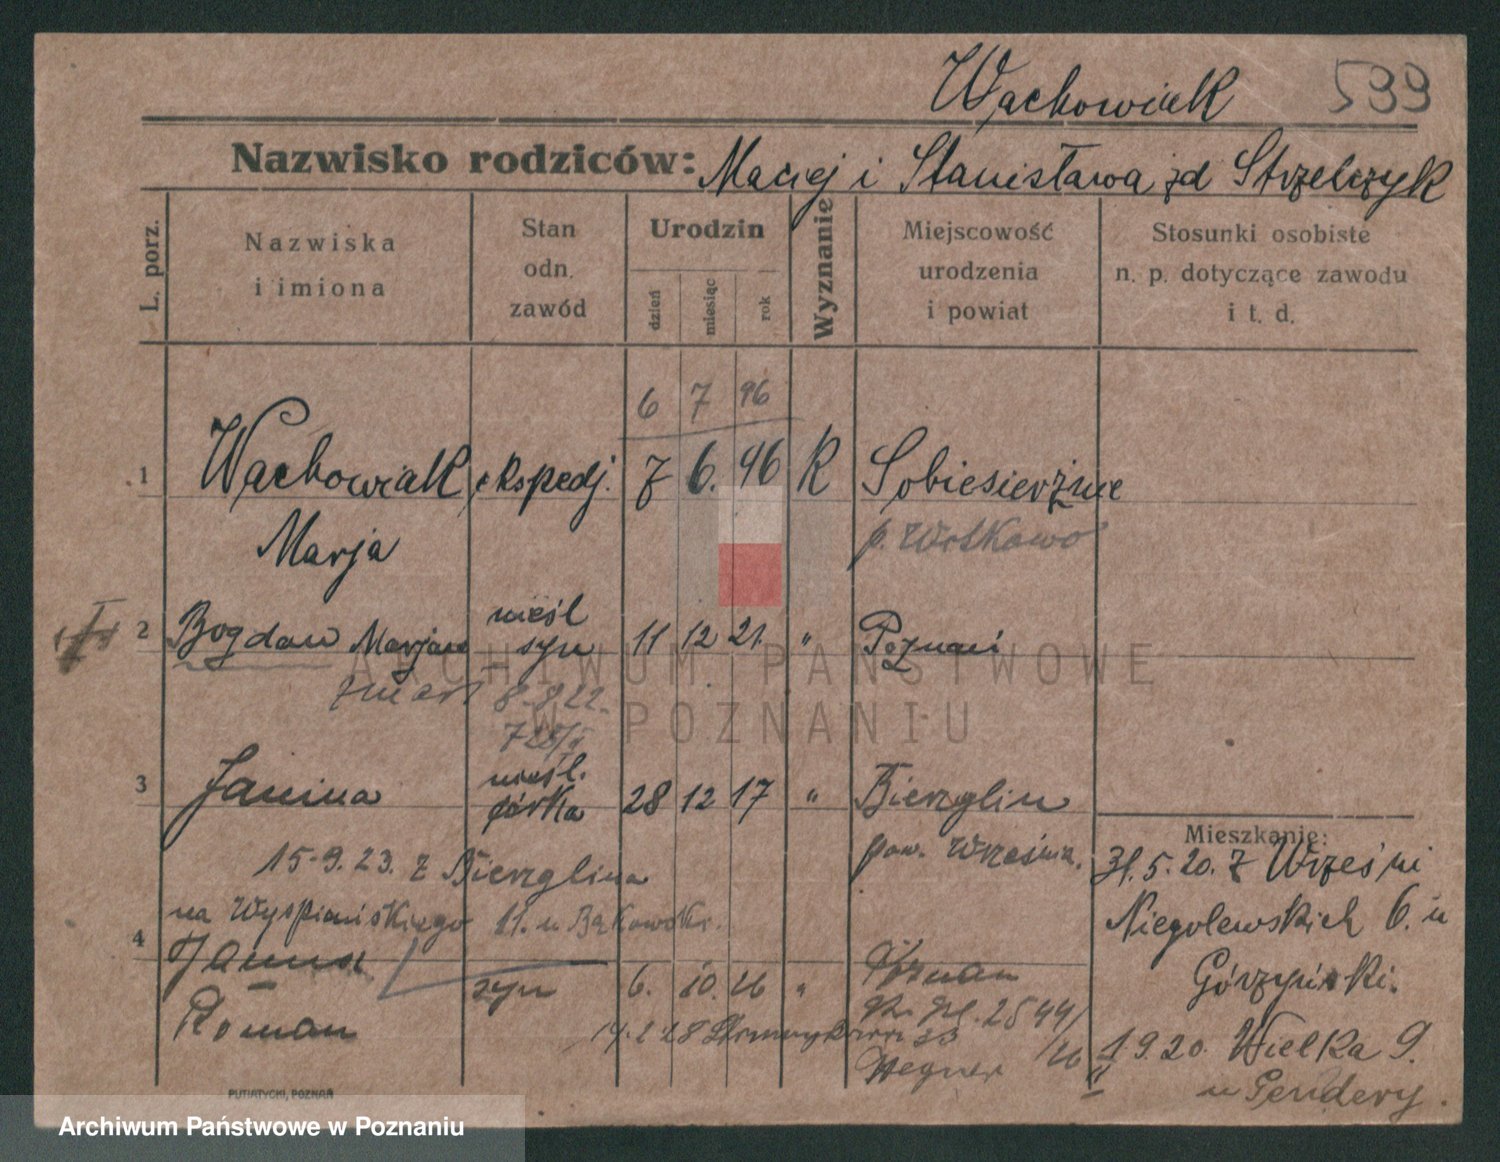 Wachowiak 599
Nazwisko rodziców: Maciej i Stanisława zd Strzelczyk
L. porz.
Nazwiska i imiona
Stan odn. zawód
Urodzin
dzień miesiąc rok
Wyznanie
Miejscowość urodzenia i powiat
Stosunki osobiste n. p. dotyczące zawodu i t. d.
6 7 96
1 Wachowiak ekspedj. 7 6. 96 K Sobiesiernie
Marja p. Witkowo
2 Bogdan Marjan nieśl syn 11 12 21. " Poznań
zmarł 8.8.22.
3 Janina nieśl. córka 28 12 17 " Bierzglin
pow. Września.
15.9.23. z Bierzglina
na Wyspiańskiego 11. u Bąkowski.
Mieszkanie:
31.5.20. z Wrześni
Niegolewskich 6. u
Górzyński.
4 Janina
Roman syn 6. 10. 26 " Poznan
2544/26
Wegner
1.9.20. Wielka 9.
u Pendery.
PUTIATYCKI, POZNAŃ
ARCHIWUM PAŃSTWOWE
W POZNANIU
Archiwum Państwowe w Poznaniu